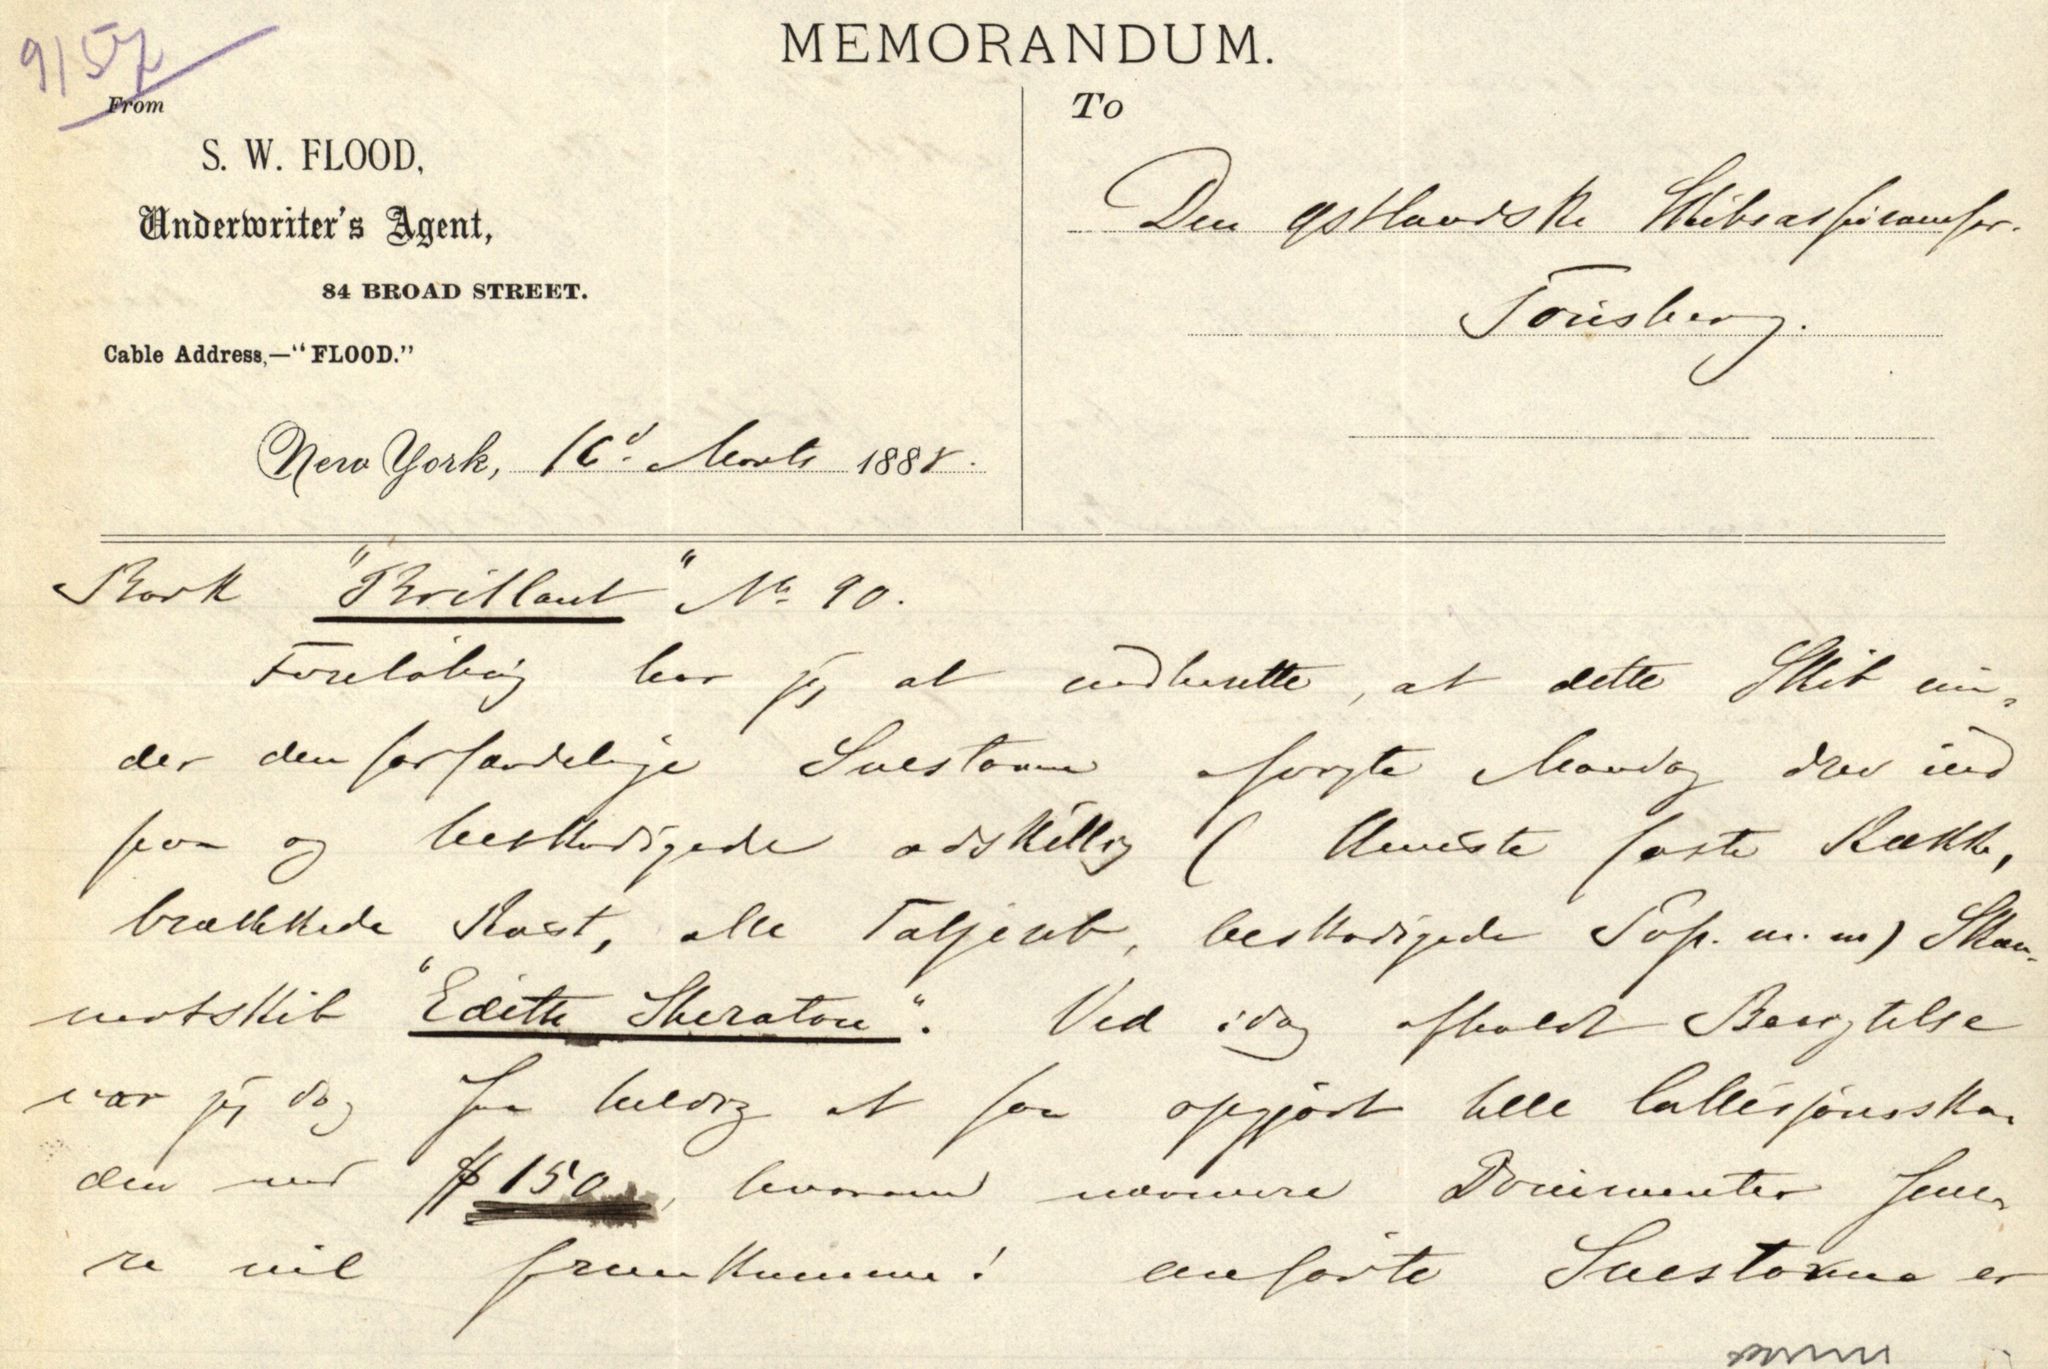 9/57
MEMORANDUM.
From
S. W. FLOOD,
Underwriter's Agent,
84 BROAD STREET.
Cable Address,—"FLOOD."
New York, 16d. Marts 1888.
To
Den østlandske Skibsassuranceforr.
Tønsberg.
Bark "Brillant" No 90.
Foreløbig har jeg at indberette, at dette Skib un-
der den forfærdelige Snestorm forrige Mandag drev ind
paa og beskadigede adskillig ( knuste faste Række,
brækkede Røst, alle Taljereb, beskadigede m. m) Skon-
nertskib "Edith Sheraton". Ved idag afholdt Besigtelse
var jeg dog saa heldig at faa opgjort hele Collisjonsska-
den med $ 150, hvorom nærmere Documenter sene-
re vil fremkomme! anførte Snestorm er